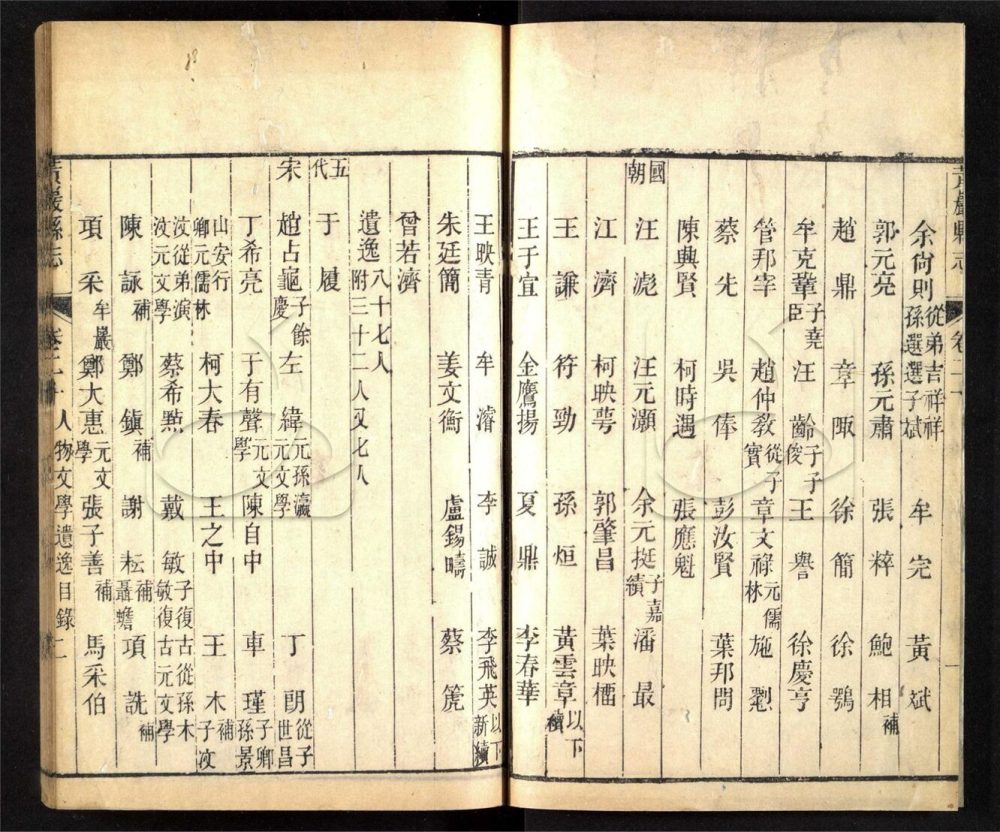 黃巖縣志 卷二十
余尙則從弟吉祥祥孫選選子斌 牟完 黃斌
郭元亮 孫元肅 張粹 鮑相補
趙鼎 章陬 徐簡 徐鶚
牟克鞏子堯臣 汪齡子子俊 王譽 徐慶亨
管邦宰 趙仲敎從子實 章文祿元儒林 施
蔡先 吳俸 彭汝賢 葉邦問
陳典賢 柯時遇 張應魁
國朝 汪滮 汪元灝 余元挺子嘉績 潘最
江濟 柯映萼 郭肇昌 葉映櫺
王謙 符勁 孫烜 黃雲章以下續
王于宜 金鷹揚 夏鼎 李春華
王映青 牟濬 李誠 李飛英以下新續
朱廷簡 姜文衡 盧錫疇 蔡箎
曾若濟
遺逸八十七人附三十二人又七人
五代 于履
宋 趙占龜子餘慶 左緯元孫瀛元文學 丁朋從子世昌
丁希亮 于有聲元文學 陳自中 車瑾子卿孫景
山安行卿元儒林 柯大春 王之中 王木補子次
汶從弟演汶元文學 蔡希點 戴敏子復古從孫木敏復古元文學
陳詠補 鄭鎭補 謝耘補聶蟾 項詵補
項采牟巖 鄭大惠元文學 張子善補 馬采伯
黃巖縣志 卷二十 人物文學遺逸目錄 二